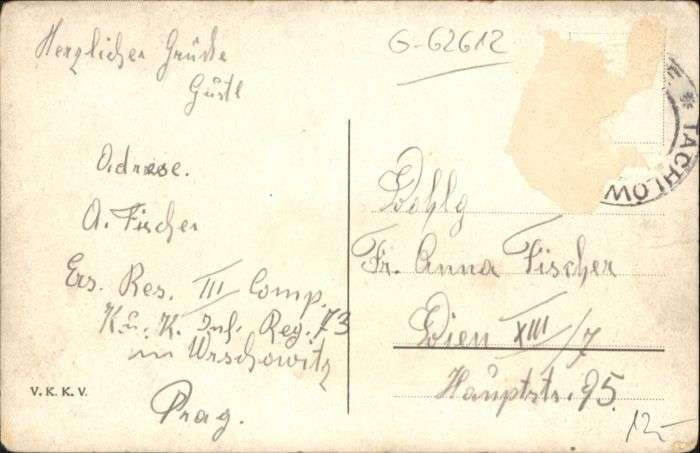 Herzlichen Grüsse
Güstl
Adresse.
A. Fischer
Ers. Res. III Comp.
K. u. K. Inf. Reg. 73
in Wrschowitz
Prag.
V. K. K. V.
G-62612
* JACHLOW
Wohlg
Fr. Anna Fischer
Wien XIII/7
Hauptstr. 95.
12-